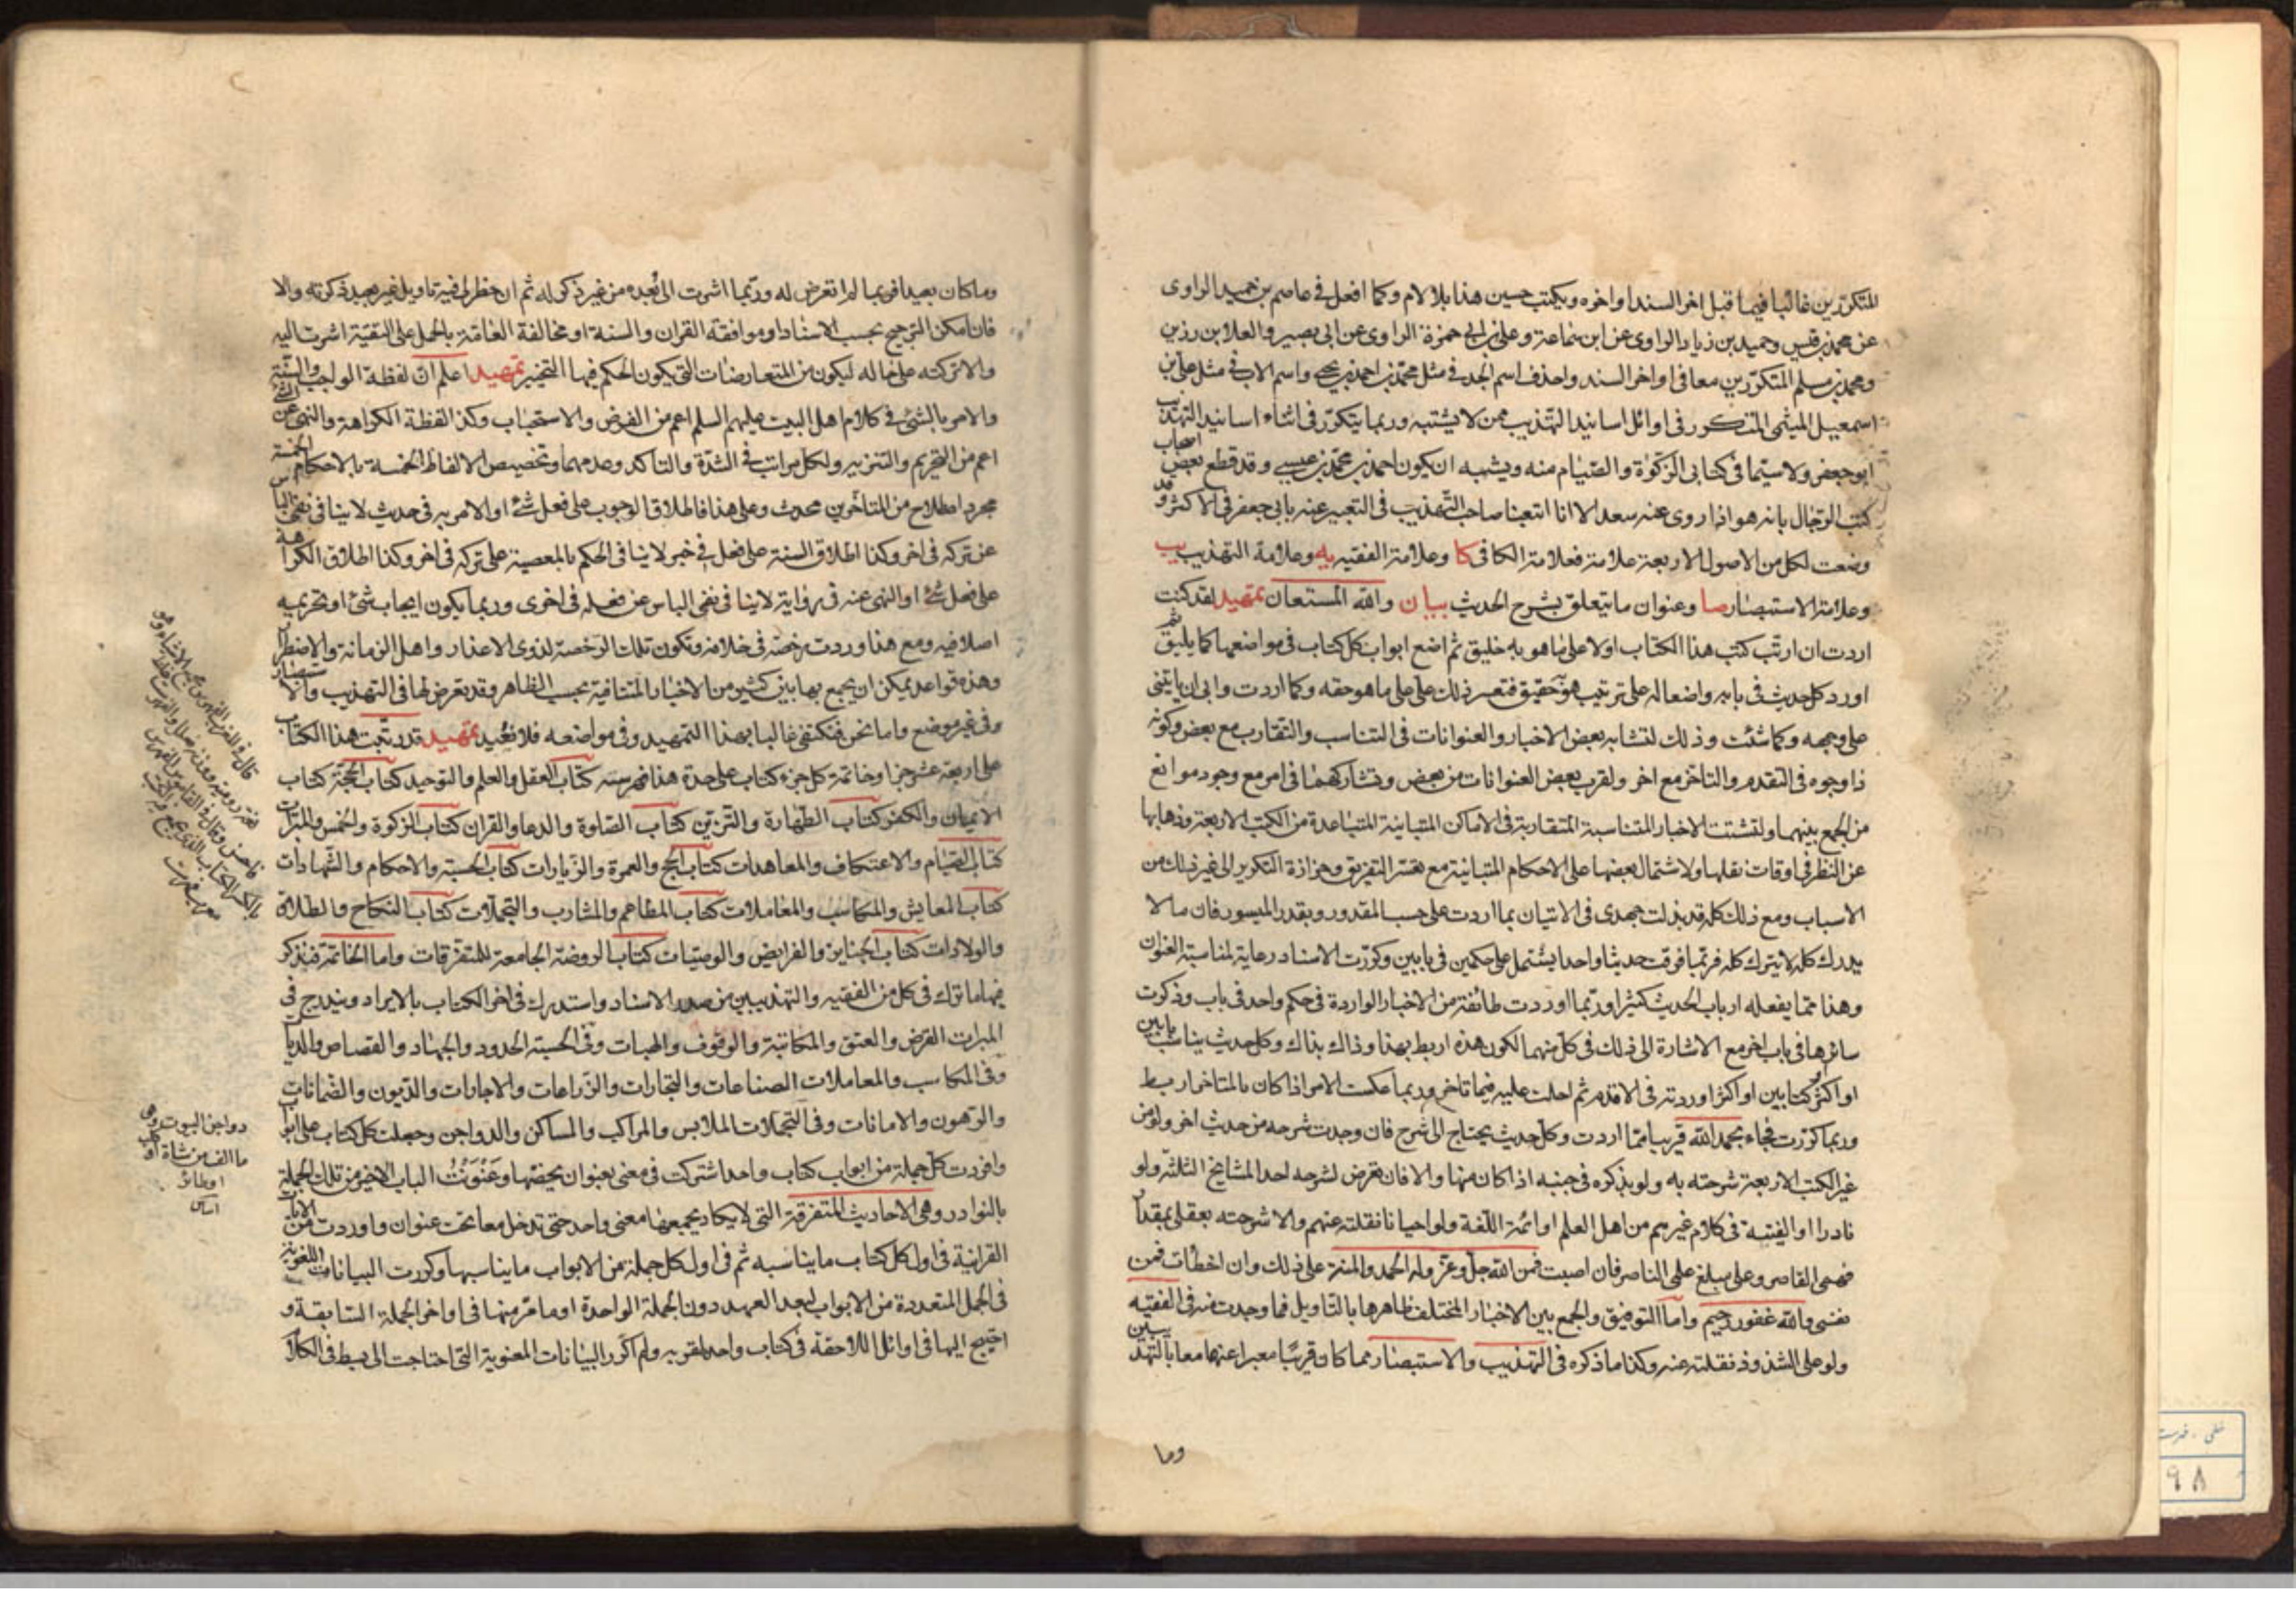 المتكررين غالبا فيما قبل اخر السند او اخره ويكتب حسين هذا بلا لام وكما افعل في عاصم بن حميد الراوى
عن محمد بن قيس وحميد بن زياد الراوى عن ابن سماعة وعلى بن ابي حمزة الراوى عن ابي بصير والعلا بن رزين
ومحمد بن مسلم المتكررين معا في اواخر السند واحذف اسم الجد في مثل محمد بن احمد بن يحيى واسم الاب في مثل على بن
اسمعيل الميثمى المذكور في اوائل اسانيد التهذيب ممن لا يشتبه وربما يتكرر في اثناء اسانيد التهذيب
ابو جعفر ولا سيما في كتابى الزكوة والصيام منه ويشبه ان يكون احمد بن محمد بن عيسى وقد قطع بعض اصحاب
كتب الرجال بانه هو اذا روى عنه سعد الا انا اتبعنا صاحب التهذيب في التعبير عنه بابي جعفر في الاكثر وقد
وضعت لكل من الاصول الاربعة علامة فعلامة الكافى كا وعلامة الفقيه يه وعلامة التهذيب يب
وعلامة الاستبصار صا وعنوان ما يتعلق بشرح الحديث بيان والله المستعان تمهيد لقد كنت
اردت ان ارتب كتب هذا الكتاب اولا على ما هو به خليق ثم اضع ابواب كل كتاب في مواضعها كما يليق ثم
اورد كل حديث في بابه واضعا له على ترتيب هو حقيق فتعسر ذلك على على ما هو حقه وكما اردت وابى ان ياتينى
على وجهه وكما شئت وذلك لتشابه بعض الاخبار والعنوانات في التناسب والتقارب مع بعض وكونه
ذا وجوه في التقدم والتاخر مع اخر ولقرب بعض العنوانات من بعض وتشاركهما في امر مع وجود موانع
من الجمع بينهما ولتشتت الاخبار المتناسبة المتقاربة في الاماكن المتباينة المتباعدة من الكتب الاربعة وذهابها
عن النظر في اوقات نقلها ولاشتمال بعضها على الاحكام المتباينة مع تعسر التفريق وحزازة التكرير الى غير ذلك من
الاسباب ومع ذلك كله قد بذلت جهدى في الاتيان بما اردت على حسب المقدور وبقدر الميسور فان ما لا
يدرك كله لا يترك كله فربما فرقت حديثا واحدا يشتمل على حكمين في بابين وكررت الاسناد رعاية لمناسبة العنوان
وهذا مما يفعله ارباب الحديث كثيرا وربما اوردت طائفة من الاخبار الواردة في حكم واحد في باب وذكرت
سائرها في باب اخر مع الاشارة الى ذلك في كل منهما لكون هذه اربط بهذا وذاك بذاك وكل حديث يناسب بابين
او اكثر او كتابين او اكثر اوردته في الاقدم ثم احلت عليه فيما تاخر وربما عكست الامر اذا كان بالمتاخر اربط
وربما كررت فجاء بحمد الله قريبا مما اردت وكل حديث يحتاج الى شرح فان وجدت شرحه من حديث اخر ولو من
غير الكتب الاربعة شرحته به ولو بذكره في جنبه اذا كان منها والا فان تعرض لشرحه احد المشايخ الثلثة ولو
نادرا او الفيته في كلام غيرهم من اهل العلم او ائمة اللغة ولو احيانا نقلته عنهم والا شرحته بعقلى بمقدار
فهمى القاصر وعلى مبلغ علمى الناصر فان اصبت فمن الله جل وعز وله الحمد والمنة على ذلك وان اخطات فمن
نفسى والله غفور رحيم واما التوفيق والجمع بين الاخبار المختلف ظاهرها بالتاويل فما وجدت منه في الفقيه
ولو على الشذوذ نقلته عنه وكذا ما ذكره في التهذيب والاستبصار مما كان قريبا معبرا عنهما معا بالتهذيبين
وما
وما كان بعيدا فربما لم اتعرض له وربما اشرت الى بعده من غير ذكر له ثم ان خطر لى فيه تاويل غير بعيد ذكرته والا
فان امكن الترجيح بحسب الاسناد او موافقة القران والسنة او مخالفة العامة بالحمل على التقية اشرت اليه
والا تركته على حاله ليكون من المتعارضات التى يكون الحكم فيها التخيير تمهيد اعلم ان لفظة الواجب والسنة
والامر بالشئ في كلام اهل البيت عليهم السلم اعم من الفرض والاستحباب وكذا لفظة الكراهة والنهى عن الشئ
اعم من التحريم والتنزيه ولكل مراتب في الشدة والتاكد وعدمهما وتخصيص الالفاظ الخمسة بالاحكام الخمسة
مجرد اصطلاح من المتاخرين محدث وعلى هذا فاطلاق الوجوب على فعل شئ او الامر به في حديث لا ينافى نفى الباس
عن تركه في اخر وكذا اطلاق السنة على فعل في خبر لا ينافى الحكم بالمعصية على تركه في اخر وكذا اطلاق الكراهة
على فعل شئ او النهى عنه في رواية لا ينافى نفى الباس عن فعله في اخرى وربما يكون ايجاب شئ او تحريمه
اصلا فيه ومع هذا وردت رخصة في خلافه وتكون تلك الرخصة لذوى الاعذار واهل الزمانة والاضطرار
وهذه قواعد يمكن ان يجمع بها بين كثير من الاخبار المتنافية بحسب الظاهر وقد تعرض لها في التهذيب والاستبصار
وفي غير موضع واما نحن فنكتفى غالبا بهذا التمهيد وفي مواضعه فلا نعيد تمهيد قد رتبت هذا الكتاب
على اربعة عشر جزا وخاتمة كل جزء كتاب على حدة هذا فهرسته كتاب العقل والعلم والتوحيد كتاب الحجة كتاب
الايمان والكفر كتاب الطهارة والتزين كتاب الصلوة والدعا والقران كتاب الزكوة والخمس والمبرات
كتاب الصيام والاعتكاف والمعاهدات كتاب الحج والعمرة والزيارات كتاب الحسبة والاحكام والشهادات
كتاب المعايش والمكاسب والمعاملات كتاب المطاعم والمشارب والتجملات كتاب النكاح والطلاق
والولادات كتاب الجنايز والفرايض والوصيات كتاب الروضة الجامعة للمتفرقات واما الخاتمة فيذكر
فيها ما ترك في كل من الفقيه والتهذيبين من صدر الاسناد واستدرك في اخر الكتاب بالايراد ويندرج في
المبرات القرض والعتق والمكاتبة والوقوف والهبات وفي الحسبة الحدود والجهاد والقصاص والديات
وفي المكاسب والمعاملات الصناعات والتجارات والزراعات والاجارات والديون والضمانات
والرهون والامانات وفي التجملات الملابس والمراكب والمساكن والدواجن وجعلت كل كتاب على ابواب
وافردت كل جملة من ابواب كتاب واحد اشتركت في معنى بعنوان يخصها وعنونت الباب الاخير من تلك الجملة
بالنوادر وهى الاحاديث المتفرقة التى لا يكاد يجمعها معنى واحد حتى تدخل معا تحت عنوان واوردت من الايات
القرانية في اول كل كتاب ما يناسبه ثم في اول كل جملة من الابواب ما يناسبها وكررت البيانات اللغوية
في الجمل المتعددة من الابواب لبعد العهد دون الجملة الواحدة او ما مر منها في اواخر الجملة السابقة و
احتيج اليها في اوائل اللاحقة في كتاب واحد لقربه ولم اكرر البيانات المعنوية التى احتاجت الى بسط في الكلام
دواجن البيوت وهى
ما الف من شاة او كلب
او طائر
اساس
٩٨